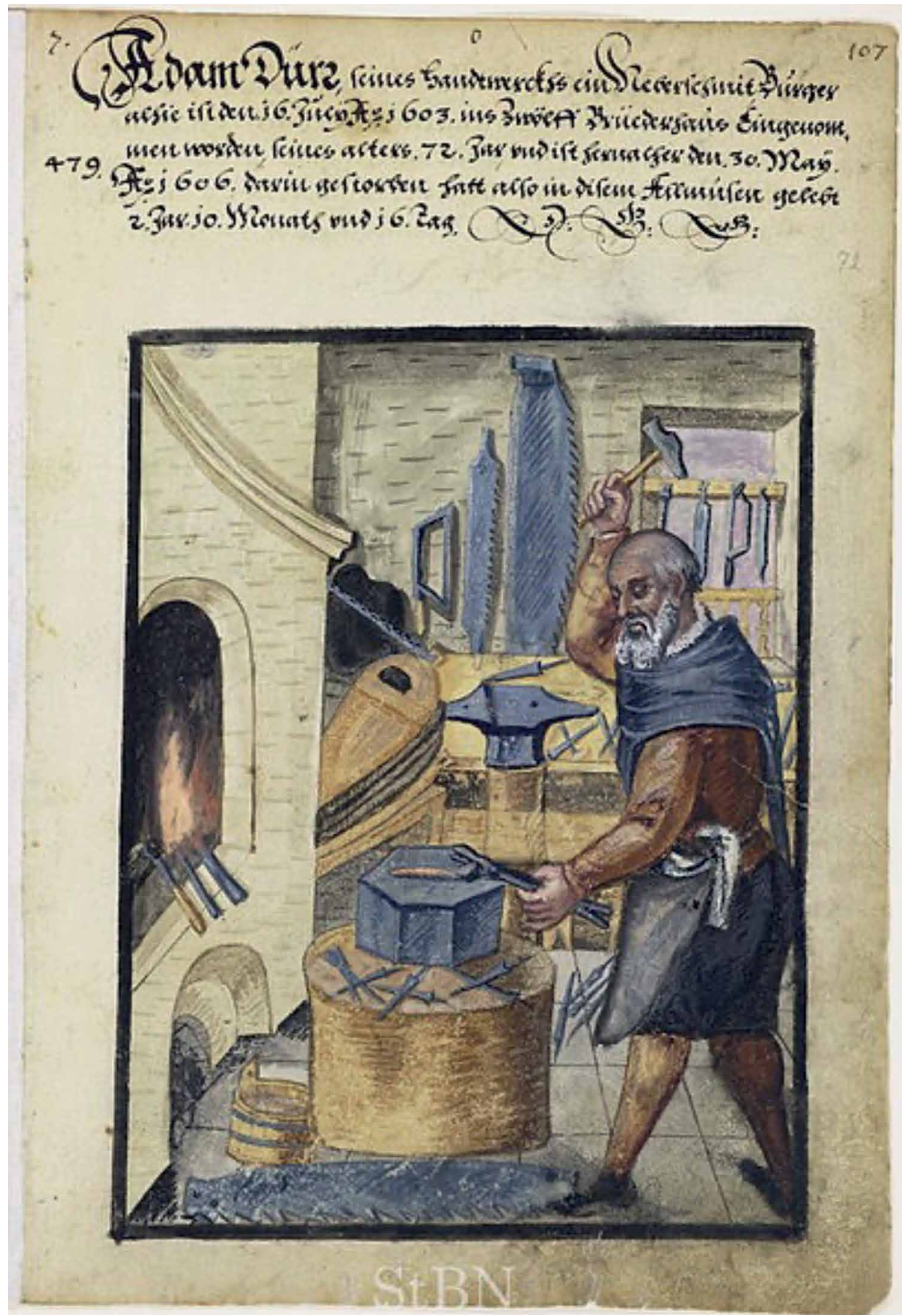 7. 0 107
Adam Dürz, seines handtwerckhs ein Neberschmit Burger
alhie ist den 16. July Aº 1603. ins Zwölff Brüederhaus Eingenom,
men worden, seines alters. 72. Jar vnd ist hernacher den. 30. May.
479. Aº 1606. darin gestorben hatt also in disem Allmusen gelebt
2. Jar. 10. Monath vnd 16. Tag.
72
StBN